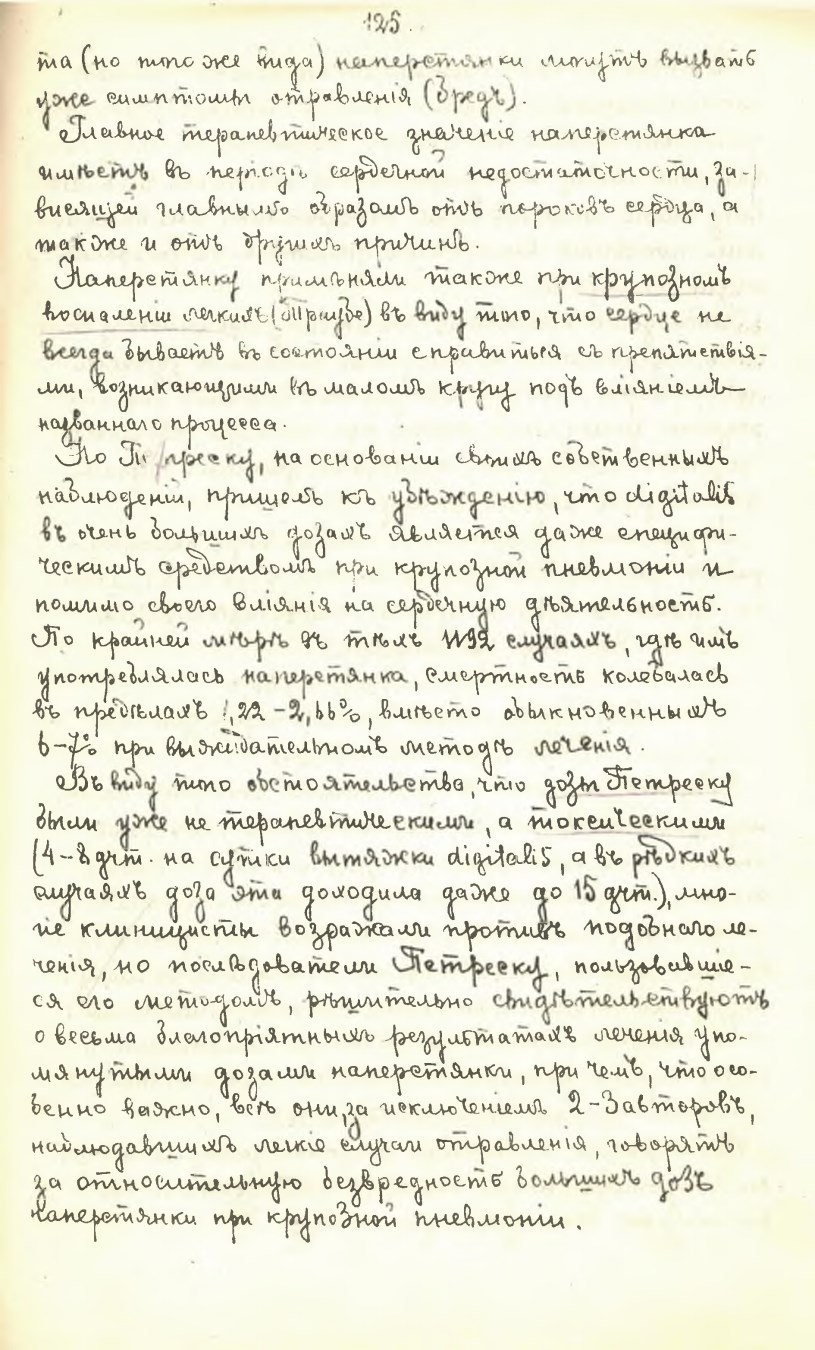 125.
та (но того же вида) наперстянки могутъ вызвать
уже симптомы отравленія (бредъ).
Главное терапевтическое значеніе наперстянка
имѣетъ въ періодъ сердечной недостаточности, за-
висящей главнымъ образомъ отъ пороковъ сердца, а
также и отъ другихъ причинъ.
Наперстянку примѣняли также при крупозномъ
воспаленіи легкихъ (Траубе) въ виду того, что сердце не
всегда бываетъ въ состояніи справиться съ препятствія-
ми, возникающими въ маломъ кругу подъ вліяніемъ
названнаго процесса.
Но П реску, на основаніи своихъ собственныхъ
наблюденій, пришелъ къ убѣжденію, что digitalis
въ очень большихъ дозахъ является даже специфи-
ческимъ средствомъ при крупозной пневмоніи и
помимо своего вліянія на сердечную дѣятельность.
По крайней мѣрѣ въ тѣхъ 1192 случаяхъ, гдѣ имъ
употреблялась наперстянка, смертность колебалась
въ предѣлахъ 1,22-2,66%, вмѣсто обыкновенныхъ
6-7% при выжидательномъ методѣ леченія.
Въ виду того обстоятельства, что дозы Петреску
были уже не терапевтическими, а токсическими
(4-8 grm. на сутки вытяжки digitalis, а въ рѣдкихъ
случаяхъ доза эта доходила даже до 15 grm.), мно-
гіе клиницисты возражали противъ подобнаго ле-
ченія, но послѣдователи Петреску, пользовавшіе-
ся его методомъ, рѣшительно свидѣтельствуютъ
о весьма благопріятныхъ результатахъ леченія упо-
мянутыми дозами наперстянки, при чемъ, что осо-
бенно важно, всѣ они, за исключеніемъ 2-3 авторовъ,
наблюдавшихъ легкіе случаи отравленія, говорятъ
за относительную безвредность большихъ дозъ
наперстянки при крупозной пневмоніи.